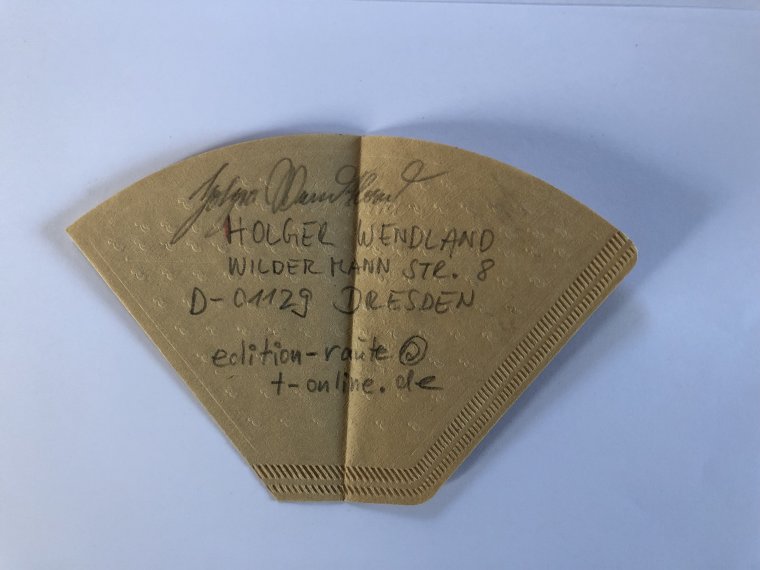 Holger Wendland
HOLGER WENDLAND
WILDERMANN STR. 8
D-01129 DRESDEN
edition-raute@
t-online.de